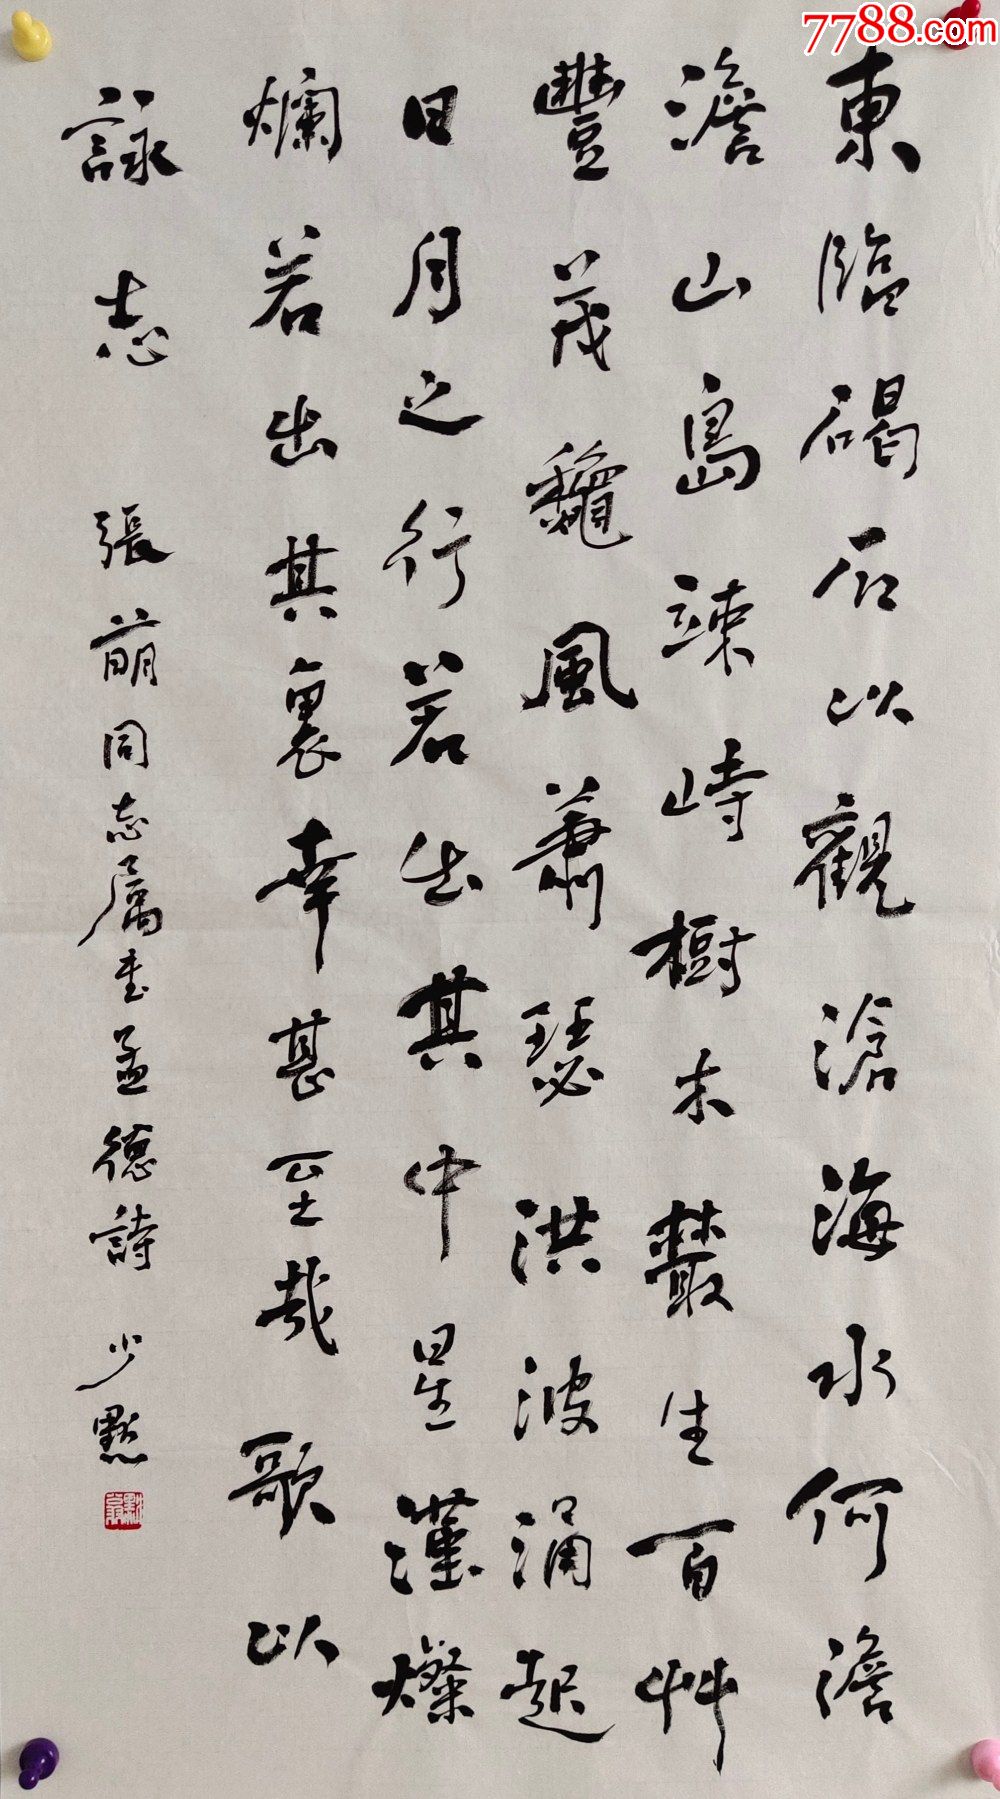 東臨碣石以觀滄海水何澹
澹山島竦峙樹木叢生百艸
豐茂龝風蕭瑟洪波涌起
日月之行若出其中星漢燦
爛若出其裏幸甚至哉歌以
詠志 張萌同志属书孟德詩 少黙
7788.com